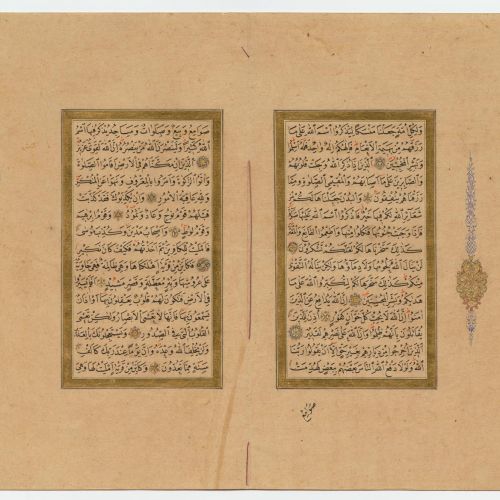 وَلِكُلِّ اُمَّةٍ جَعَلْنَا مَنْسَكًا لِيَذْكُرُوا اسْمَ اللهِ عَلٰى مَا
رَزَقَهُمْ مِنْ بَهِيمَةِ الْاَنْعَامِ فَاِلٰهُكُمْ اِلٰهٌ وَاحِدٌ فَلَهُ اَسْلِمُوا
وَبَشِّرِ الْمُخْبِتِينَ اَلَّذِينَ اِذَا ذُكِرَ اللهُ وَجِلَتْ قُلُوبُهُمْ
وَالصَّابِرِينَ عَلٰى مَا اَصَابَهُمْ وَالْمُقِيمِي الصَّلٰوةِ وَمِمَّا
رَزَقْنَاهُمْ يُنْفِقُونَ وَالْبُدْنَ جَعَلْنَاهَا لَكُمْ مِنْ
شَعَائِرِ اللهِ لَكُمْ فِيهَا خَيْرٌ فَاذْكُرُوا اسْمَ اللهِ عَلَيْهَا صَوَافَّ
فَاِذَا وَجَبَتْ جُنُوبُهَا فَكُلُوا مِنْهَا وَاَطْعِمُوا الْقَانِعَ وَالْمُعْتَرَّ
كَذٰلِكَ سَخَّرْنَاهَا لَكُمْ لَعَلَّكُمْ تَشْكُرُونَ
لَنْ يَنَالَ اللهَ لُحُومُهَا وَلَا دِمَاؤُهَا وَلٰكِنْ يَنَالُهُ التَّقْوٰى
مِنْكُمْ كَذٰلِكَ سَخَّرَهَا لَكُمْ لِتُكَبِّرُوا اللهَ عَلٰى مَا
هَدٰيكُمْ وَبَشِّرِ الْمُحْسِنِينَ اِنَّ اللهَ يُدَافِعُ عَنِ الَّذِينَ
اٰمَنُوا اِنَّ اللهَ لَا يُحِبُّ كُلَّ خَوَّانٍ كَفُورٍ اُذِنَ لِلَّذِينَ
يُقَاتَلُونَ بِاَنَّهُمْ ظُلِمُوا وَاِنَّ اللهَ عَلٰى نَصْرِهِمْ لَقَدِيرٌ
اَلَّذِينَ اُخْرِجُوا مِنْ دِيَارِهِمْ بِغَيْرِ حَقٍّ اِلَّا اَنْ يَقُولُوا رَبُّنَا
اللهُ وَلَوْلَا دَفْعُ اللهِ النَّاسَ بَعْضَهُمْ بِبَعْضٍ لَهُدِّمَتْ
صوامع
صَوَامِعُ وَبِيَعٌ وَصَلَوَاتٌ وَمَسَاجِدُ يُذْكَرُ فِيهَا اسْمُ
اللهِ كَثِيرًا وَلَيَنْصُرَنَّ اللهُ مَنْ يَنْصُرُهُ اِنَّ اللهَ لَقَوِيٌّ عَزِيزٌ
اَلَّذِينَ اِنْ مَكَّنَّاهُمْ فِي الْاَرْضِ اَقَامُوا الصَّلٰوةَ
وَاٰتَوُا الزَّكٰوةَ وَاَمَرُوا بِالْمَعْرُوفِ وَنَهَوْا عَنِ الْمُنْكَرِ
وَلِلّٰهِ عَاقِبَةُ الْاُمُورِ وَاِنْ يُكَذِّبُوكَ فَقَدْ كَذَّبَتْ
قَبْلَهُمْ قَوْمُ نُوحٍ وَعَادٌ وَثَمُودُ وَقَوْمُ اِبْرٰهِيمَ
وَقَوْمُ لُوطٍ وَاَصْحَابُ مَدْيَنَ وَكُذِّبَ مُوسٰى
فَاَمْلَيْتُ لِلْكَافِرِينَ ثُمَّ اَخَذْتُهُمْ فَكَيْفَ كَانَ نَكِيرِ
فَكَاَيِّنْ مِنْ قَرْيَةٍ اَهْلَكْنَاهَا وَهِيَ ظَالِمَةٌ فَهِيَ خَاوِيَةٌ
عَلٰى عُرُوشِهَا وَبِئْرٍ مُعَطَّلَةٍ وَقَصْرٍ مَشِيدٍ اَفَلَمْ يَسِيرُوا
فِي الْاَرْضِ فَتَكُونَ لَهُمْ قُلُوبٌ يَعْقِلُونَ بِهَا اَوْ اٰذَانٌ
يَسْمَعُونَ بِهَا فَاِنَّهَا لَا تَعْمَى الْاَبْصَارُ وَلٰكِنْ تَعْمَى
الْقُلُوبُ الَّتِي فِي الصُّدُورِ وَيَسْتَعْجِلُونَكَ بِالْعَذَابِ
وَلَنْ يُخْلِفَ اللهُ وَعْدَهُ وَاِنَّ يَوْمًا عِنْدَ رَبِّكَ كَاَلْفِ
سَنَةٍ مِمَّا تَعُدُّونَ وَكَاَيِّنْ مِنْ قَرْيَةٍ اَمْلَيْتُ لَهَا وَهِيَ